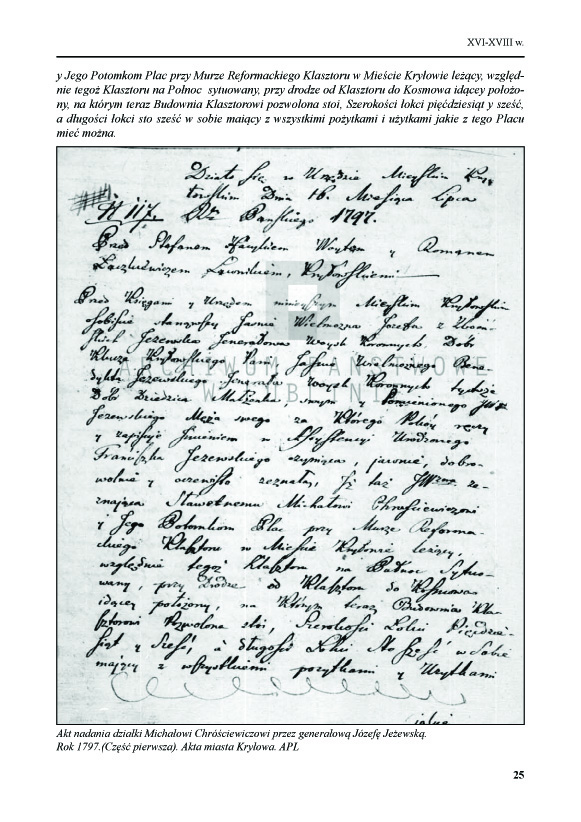 XVI-XVIII w.
y Jego Potomkom Plac przy Murze Reformackiego Klasztoru w Mieście Kryłowie leżący, względ-
nie tegoż Klasztoru na Połnoc sytuowany, przy drodze od Klasztoru do Kosmowa idącey położo-
ny, na którym teraz Budownia Klasztorowi pozwolona stoi, Szerokości łokci pięćdziesiąt y sześć,
a długości łokci sto sześć w sobie maiący z wszystkimi pożytkami i użytkami jakie z tego Placu
mieć można.
Działo się w Urzędzie Mieyskim Kry-
łowskim Dnia 16. Miesiąca Lipca
N 117. Pańskiego 1797.
Przed Stefanem Woytem y Romanem
Ławnikiem, Kryłowskiemi
Przed Księgami y Urzędem ninieyszym Mieyskim Kryłowskim
osobiście stanąwszy Jaśnie Wielmożna Józefa z
Jezewska Jenerałowa Woysk Koronnych, Dobr
Klucza Kryłowskiego Pani, Jaśnie Wielmożnego Bene-
dykta Jezewskiego Jenerała Woysk Koronnych tychże
Dobr Dziedzica Małżonka, swym y pomienionego
Jezewskiego Męża swego za Którego
y zapisuje Imieniem w Assystencyi Urodzonego
Franciszka Jezewskiego czyniąca, jawnie, dobro-
wolnie y oczewiście zeznała, Iż taż ze-
znająca Sławetnemu Michałowi Chruściewiczowi
y Jego Potomkom Plac przy Murze Reforma-
ckiego Klasztoru w Mieście Kryłowie leżący,
względnie tegoż Klasztoru na Połnoc Sytuo-
wany, przy Drodze od Klasztoru do Kosmowa
idącey położony, na Którym teraz Budownia Kla-
sztorowi Pozwolona stoi, Szerokości Łokci Pięćdzie-
siąt y Sześć, a Długości Łokci Sto Sześć w Sobie
mający z wszystkiemi pożytkami y Użytkami
jakie
ARCHIWUM PAŃSTWOWE
W LUBLINIE
Akt nadania działki Michałowi Chróściewiczowi przez generałową Józefę Jeżewską.
Rok 1797.(Część pierwsza). Akta miasta Kryłowa. APL
25